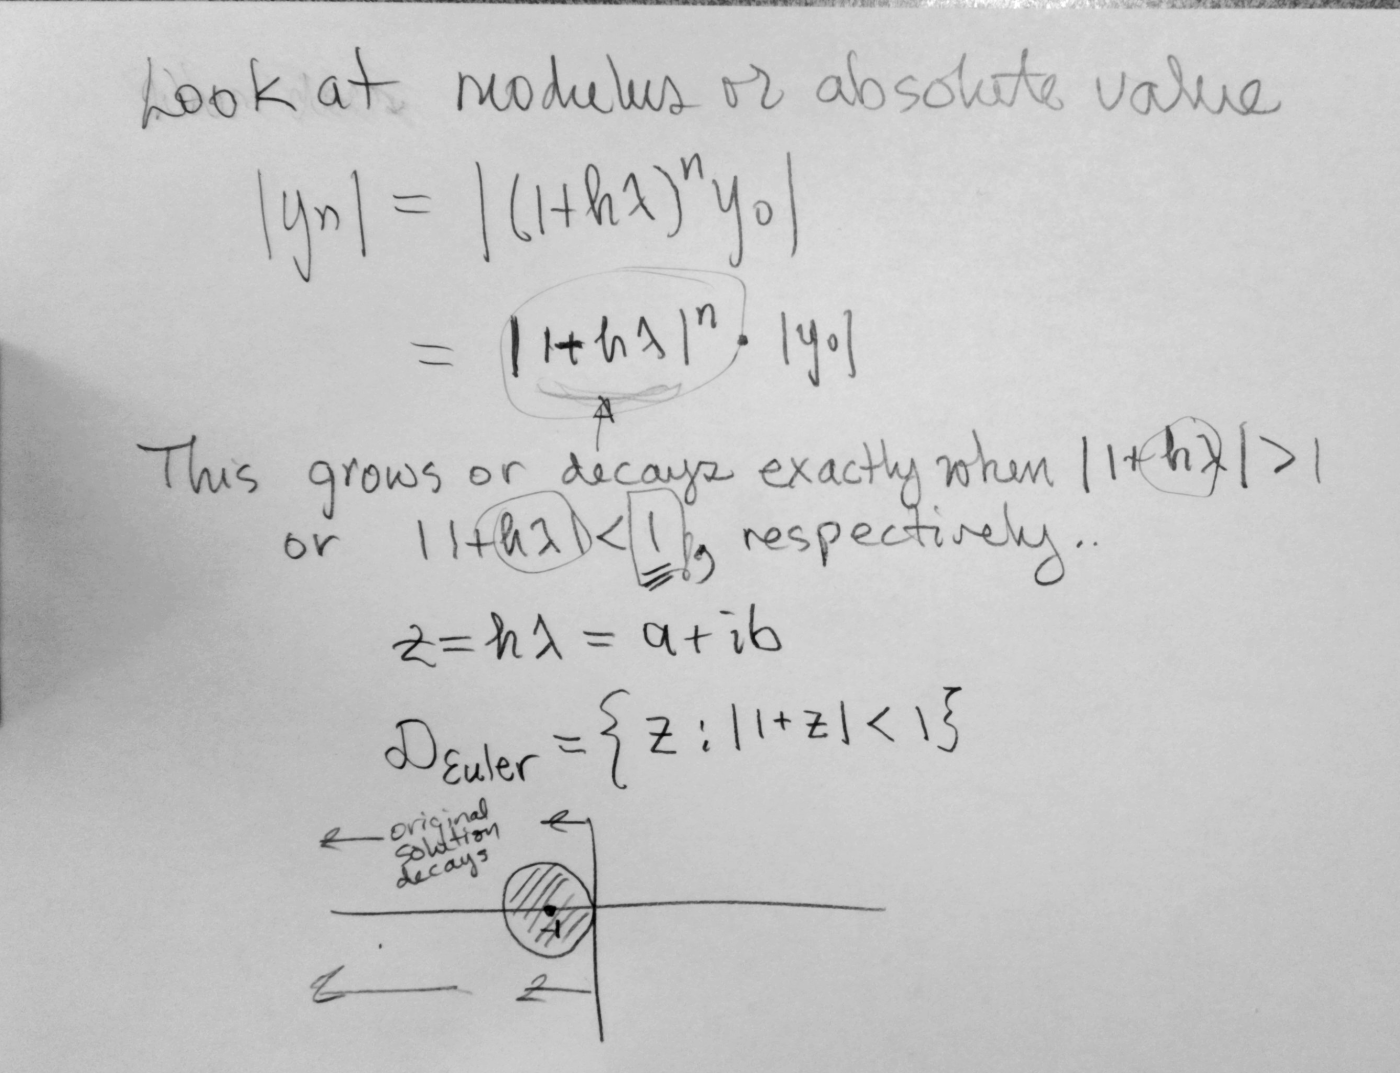 Look at modulus or absolute value
|yn| = |(1+hλ)^n y0|
= |1+hλ|^n · |y0|
This grows or decays exactly when |1+hλ|>1
or |1+hλ|<1, respectively..
z=hλ = a+ib
D Euler = {z : |1+z| < 1}
← original
solution
decays
←
-1
← ←